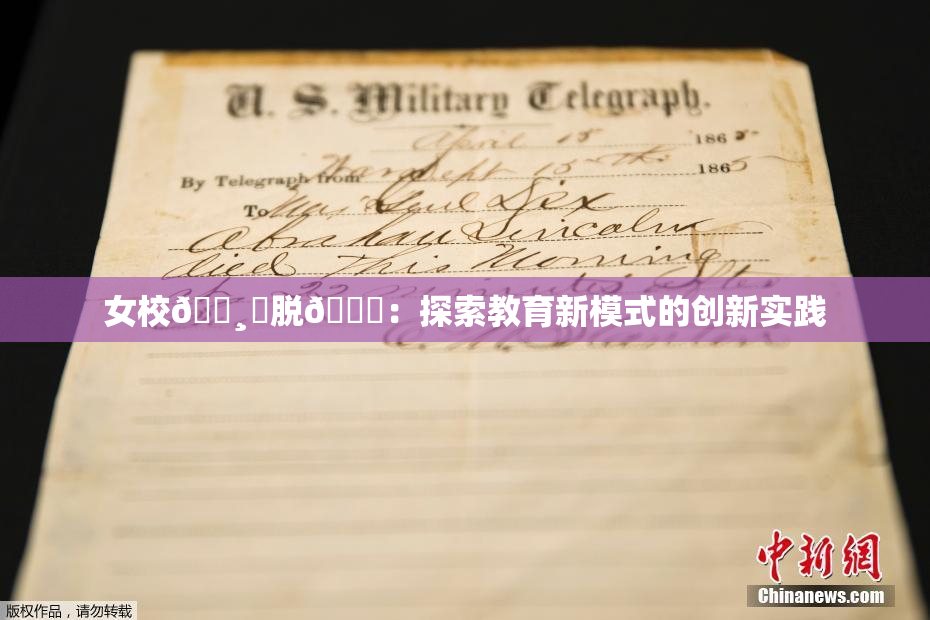 U. S. Military Telegraph.
April 15 1865
By Telegraph from War Dept 15th 1865
To Maj Genl Dix
Abraham Lincoln
died This Morning
at 22 minutes after
女校ð：探索教育新模式的创新实践
E. M. Stanton
中新网
Chinanews.com
版权作品，请勿转载